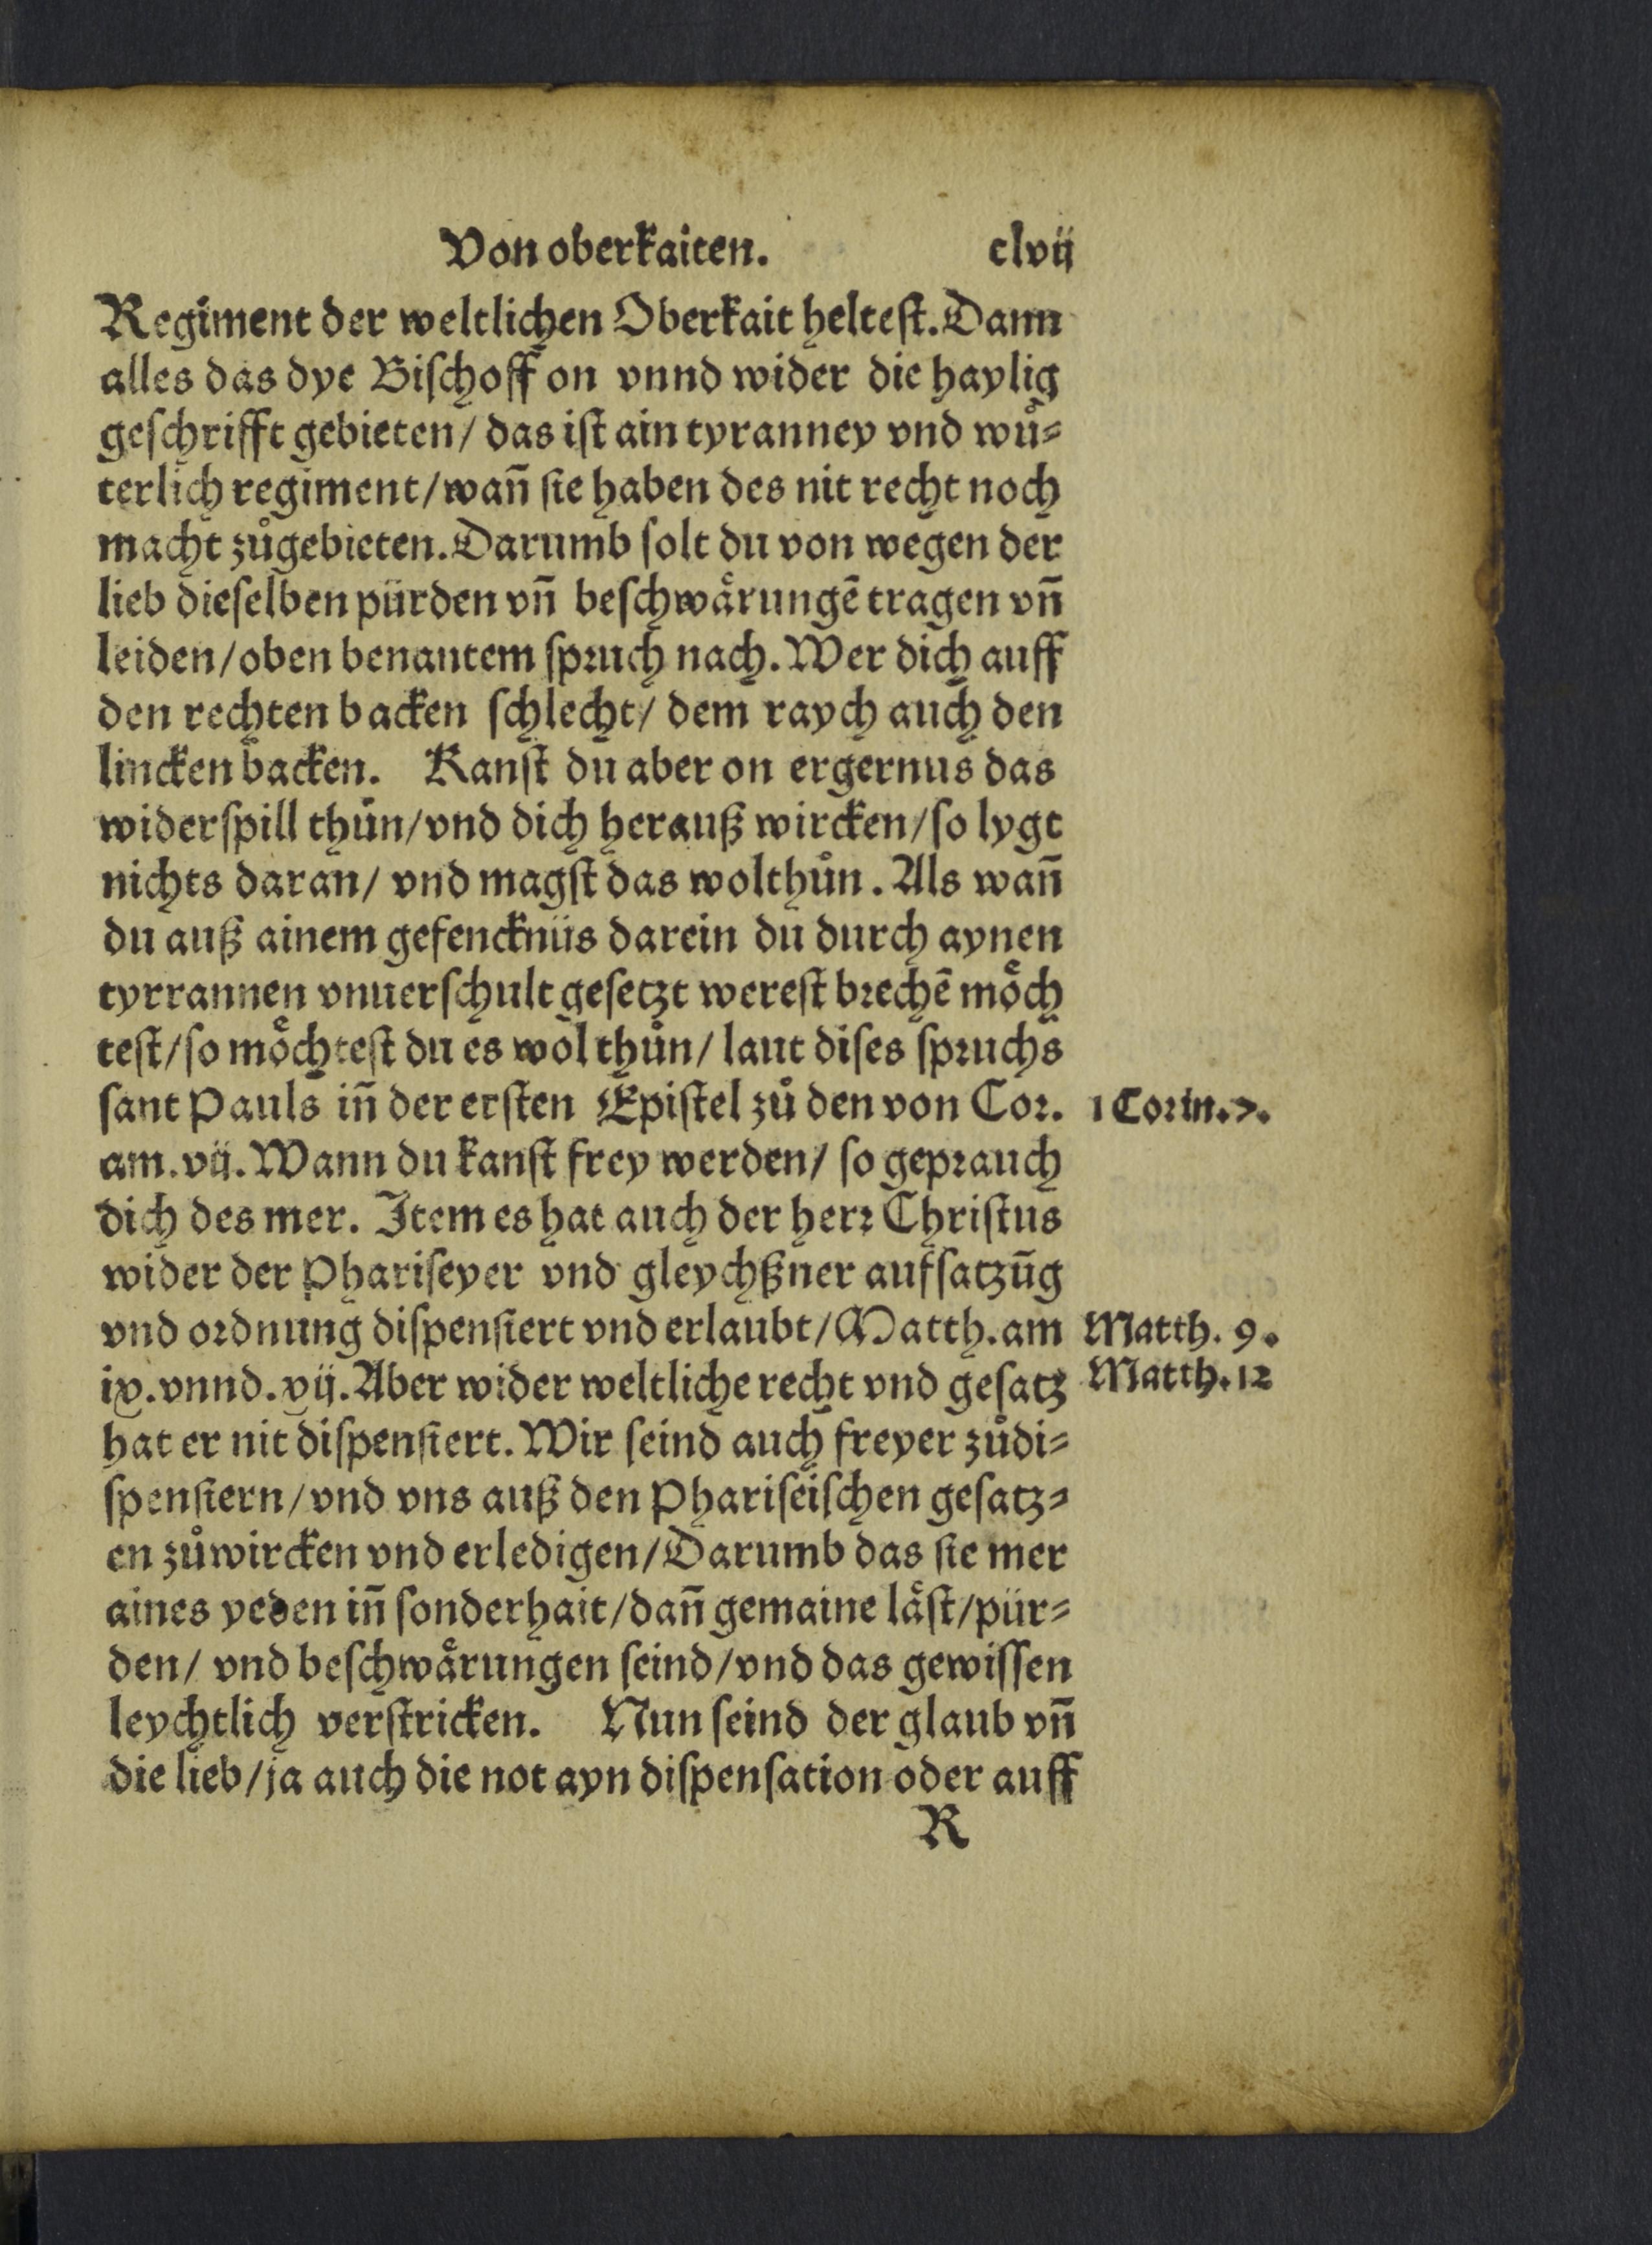 Von oberkaiten. clvij
Regiment der weltlichen Oberkait heltest. Dann
alles das dye Bischoff on vnnd wider die haylig
geschrifft gebieten/ das ist ain tyranney vnd wuͤ⸗
terlich regiment/wañ sie haben des nit recht noch
macht zuͦgebieten. Darumb solt du von wegen der
lieb dieselben pürden vñ beschwaͤrungẽ tragen vñ
leiden/oben benantem spruch nach. Wer dich auff
den rechten backen schlecht/ dem raych auch den
lincken backen. Kanst du aber on ergernus das
widerspill thuͦn/vnd dich herauß wircken/so lygt
nichts daran/ vnd magst das wolthuͦn. Als wañ
du auß ainem gefencknüs darein du durch aynen
tyrrannen vnuerschult gesetzt werest brechẽ moͤch
test/so moͤchtest du es wol thuͦn/ laut dises spruchs
sant Pauls iñ der ersten Epistel zuͦ den von Cor. 1 Corin. 7.
am. vij. Wann du kanst frey werden/ so geprauch
dich des mer. Item es hat auch der herr Christus
wider der Phariseyer vnd gleychßner aufsatzũg
vnd ordnung dispensiert vnd erlaubt/Matth. am Matth. 9.
ix. vnnd. xij. Aber wider weltliche recht vnd gesatz Matth. 12
hat er nit dispensiert. Wir seind auch freyer zuͦdi⸗
spensiern/vnd vns auß den Phariseischen gesatz⸗
en zuͦwircken vnd erledigen/Darumb das sie mer
aines yeden iñ sonderhait/dañ gemaine laͤst/pür⸗
den/ vnd beschwaͤrungen seind/vnd das gewissen
leychtlich verstricken. Nun seind der glaub vñ
die lieb/ja auch die not ayn dispensation oder auff
R